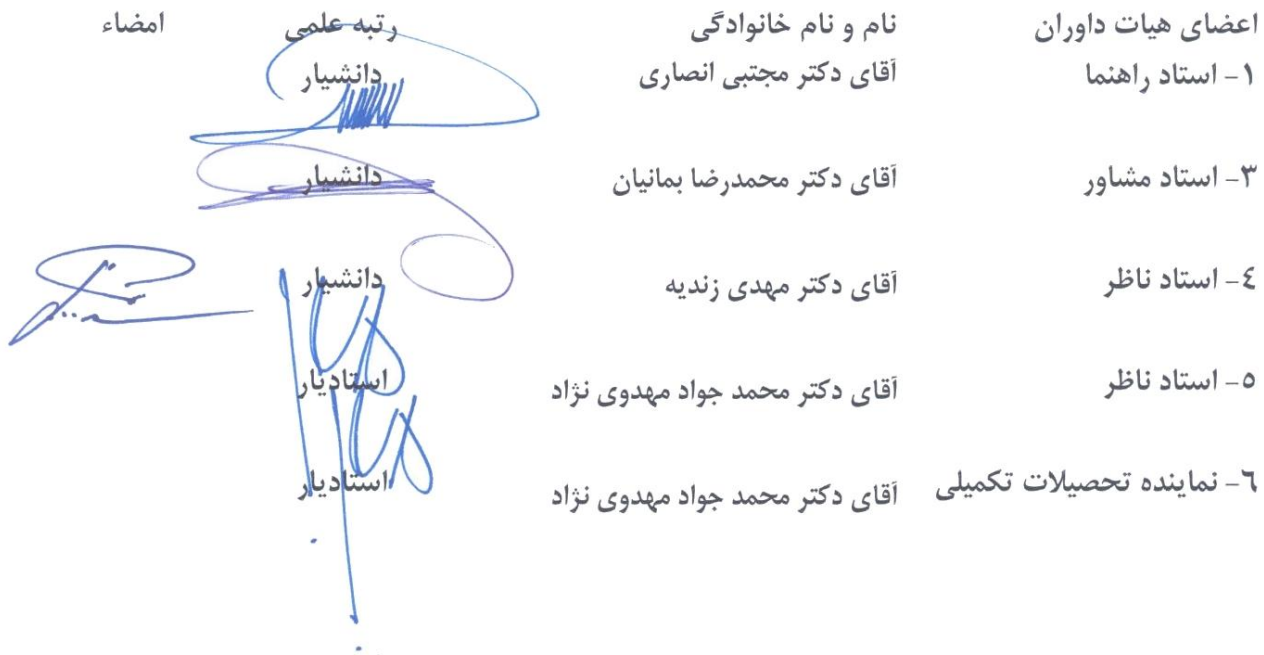 اعضای هیات داوران نام و نام خانوادگی رتبه علمی امضاء
۱- استاد راهنما آقای دکتر مجتبی انصاری دانشیار
۳- استاد مشاور آقای دکتر محمدرضا بمانیان دانشیار
٤- استاد ناظر آقای دکتر مهدی زندیه دانشیار
٥- استاد ناظر آقای دکتر محمد جواد مهدوی نژاد استادیار
٦- نماینده تحصیلات تکمیلی آقای دکتر محمد جواد مهدوی نژاد استادیار